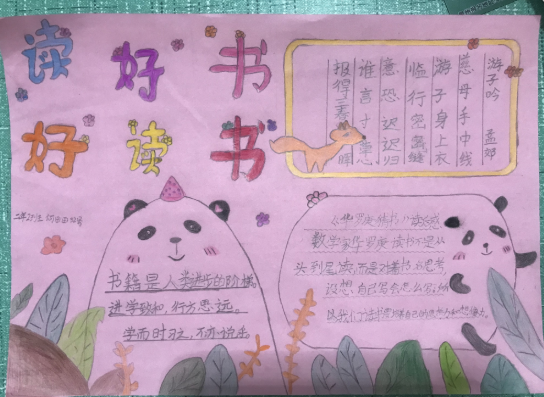 读好书
好读书
游子吟 孟郊
慈母手中线
游子身上衣
临行密密缝
意恐迟迟归
谁言寸草心
报得三春晖
书籍是人类进步的阶梯。
进学致和，行方思远。
学而时习之，不亦说乎
数学家华罗庚读书不是从
头到尾读，而是对着书思考
设想，自己写会怎么写，